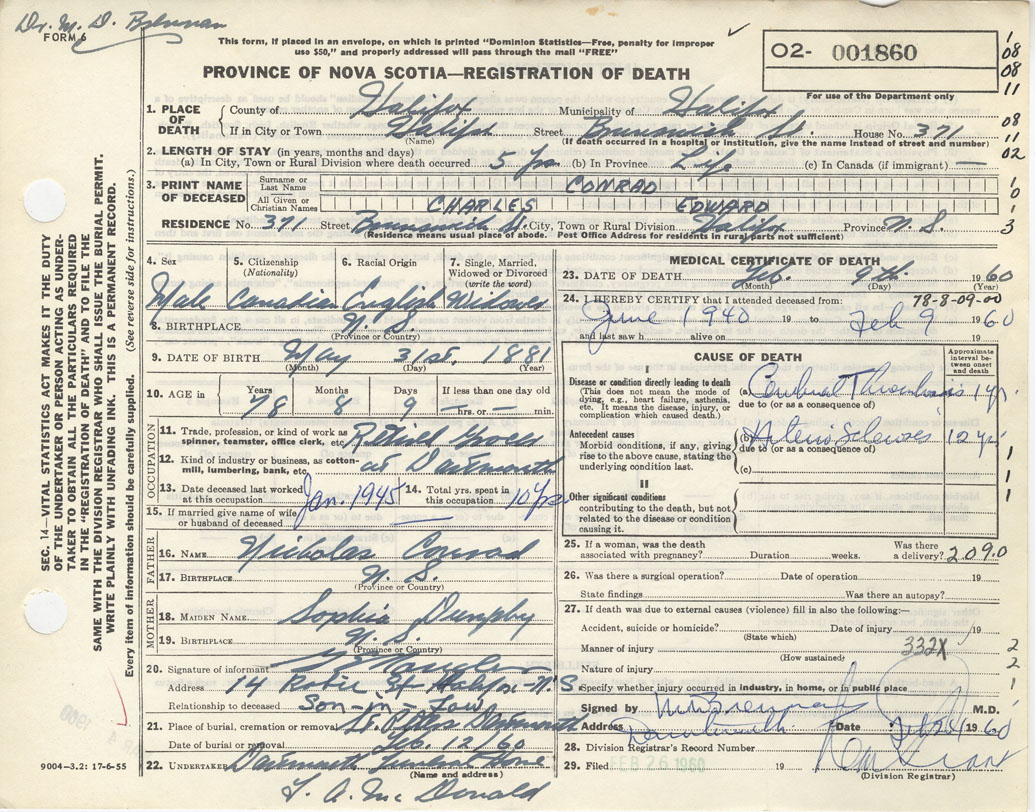 Dr. M. D. Brennan
FORM 6
This form, if placed in an envelope, on which is printed "Dominion Statistics—Free, penalty for improper
use $50," and properly addressed will pass through the mail "FREE"
O2- 001860
For use of the Department only
PROVINCE OF NOVA SCOTIA—REGISTRATION OF DEATH
1. PLACE OF DEATH
County of Halifax Municipality of Halifax
If in City or Town Halifax Street Brunswick St. House No. 371
(Name) (If death occurred in a hospital or institution, give the name instead of street and number)
2. LENGTH OF STAY (in years, months and days)
(a) In City, Town or Rural Division where death occurred 5 yrs (b) In Province Life (c) In Canada (if immigrant) —
3. PRINT NAME OF DECEASED
Surname or Last Name CONRAD
All Given or Christian Names CHARLES EDWARD
RESIDENCE No. 371 Street Brunswick St. City, Town or Rural Division Halifax Province N.S.
(Residence means usual place of abode. Post Office Address for residents in rural parts not sufficient)
1
08
08
11
08
11
02
1
0
1
3
4. Sex 5. Citizenship (Nationality) 6. Racial Origin 7. Single, Married, Widowed or Divorced (write the word)
Male Canadian English Widower
8. BIRTHPLACE N.S.
(Province or Country)
9. DATE OF BIRTH May 31st. 1881
(Month) (Day) (Year)
10. AGE IN Years Months Days If less than one day old
78 8 9 — hrs. or — min.
OCCUPATION
11. Trade, profession, or kind of work as spinner, teamster, office clerk, etc. Retired Grocer
12. Kind of industry or business, as cotton-mill, lumbering, bank, etc. at Dartmouth
13. Date deceased last worked at this occupation Jan. 1945 14. Total yrs. spent in this occupation 10 yrs
15. If married give name of wife or husband of deceased —
FATHER
16. NAME Nicholas Conrad
17. BIRTHPLACE N.S.
(Province or Country)
MOTHER
18. MAIDEN NAME Sophia Dumphy
19. BIRTHPLACE N.S.
(Province or Country)
20. Signature of informant
Address 14 Robie St Halifax-N.S
Relationship to deceased Son-in-Law
21. Place of burial, cremation or removal St. Peters Dartmouth
Date of burial or removal Feb. 12/60
22. UNDERTAKER Dartmouth Funeral Home
(Name and address)
L. A. Mc Donald
9004-3.2: 17-6-55
MEDICAL CERTIFICATE OF DEATH
23. DATE OF DEATH Feb. 9th. 1960
(Month) (Day)
24. I HEREBY CERTIFY that I attended deceased from: 78-8-09-00
June 1940 19 to Feb 9 1960
and last saw h alive on 19
CAUSE OF DEATH
Approximate interval between onset and death
I
Disease or condition directly leading to death
(This does not mean the mode of dying, e.g., heart failure, asthenia, etc. It means the disease, injury, or complication which caused death.)
(a) Cerebral Thrombosis 1 yr.
due to (or as a consequence of)
Antecedent causes
Morbid conditions, if any, giving rise to the above cause, stating the underlying condition last.
(b) Arterio Sclerosis 12 yrs
due to (or as a consequence of)
(c)
II
Other significant conditions
contributing to the death, but not related to the disease or condition causing it.
1
1
1
25. If a woman, was the death associated with pregnancy? Duration weeks. Was there a delivery? 2090
26. Was there a surgical operation? Date of operation 19
State findings Was there an autopsy?
27. If death was due to external causes (violence) fill in also the following:—
Accident, suicide or homicide? Date of injury 19
(State which)
Manner of injury 332X 2
(How sustained)
Nature of injury 2
Specify whether injury occurred in industry, in home, or in public place 1
Signed by M.D. Brennan M.D.
Address Dartmouth Date Feb 24 1960
28. Division Registrar's Record Number
29. Filed FEB 26 1960 19
(Division Registrar)
SEC. 14—VITAL STATISTICS ACT MAKES IT THE DUTY
OF THE UNDERTAKER OR PERSON ACTING AS UNDER-
TAKER TO OBTAIN ALL THE PARTICULARS REQUIRED
IN THE "REGISTRATION OF DEATH" AND TO FILE THE
SAME WITH THE DIVISION REGISTRAR WHO SHALL ISSUE THE BURIAL PERMIT.
WRITE PLAINLY WITH UNFADING INK. THIS IS A PERMANENT RECORD.
Every item of information should be carefully supplied. (See reverse side for instructions.)